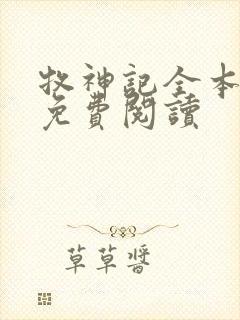 牧神記全本
免費閱讀
草草醬